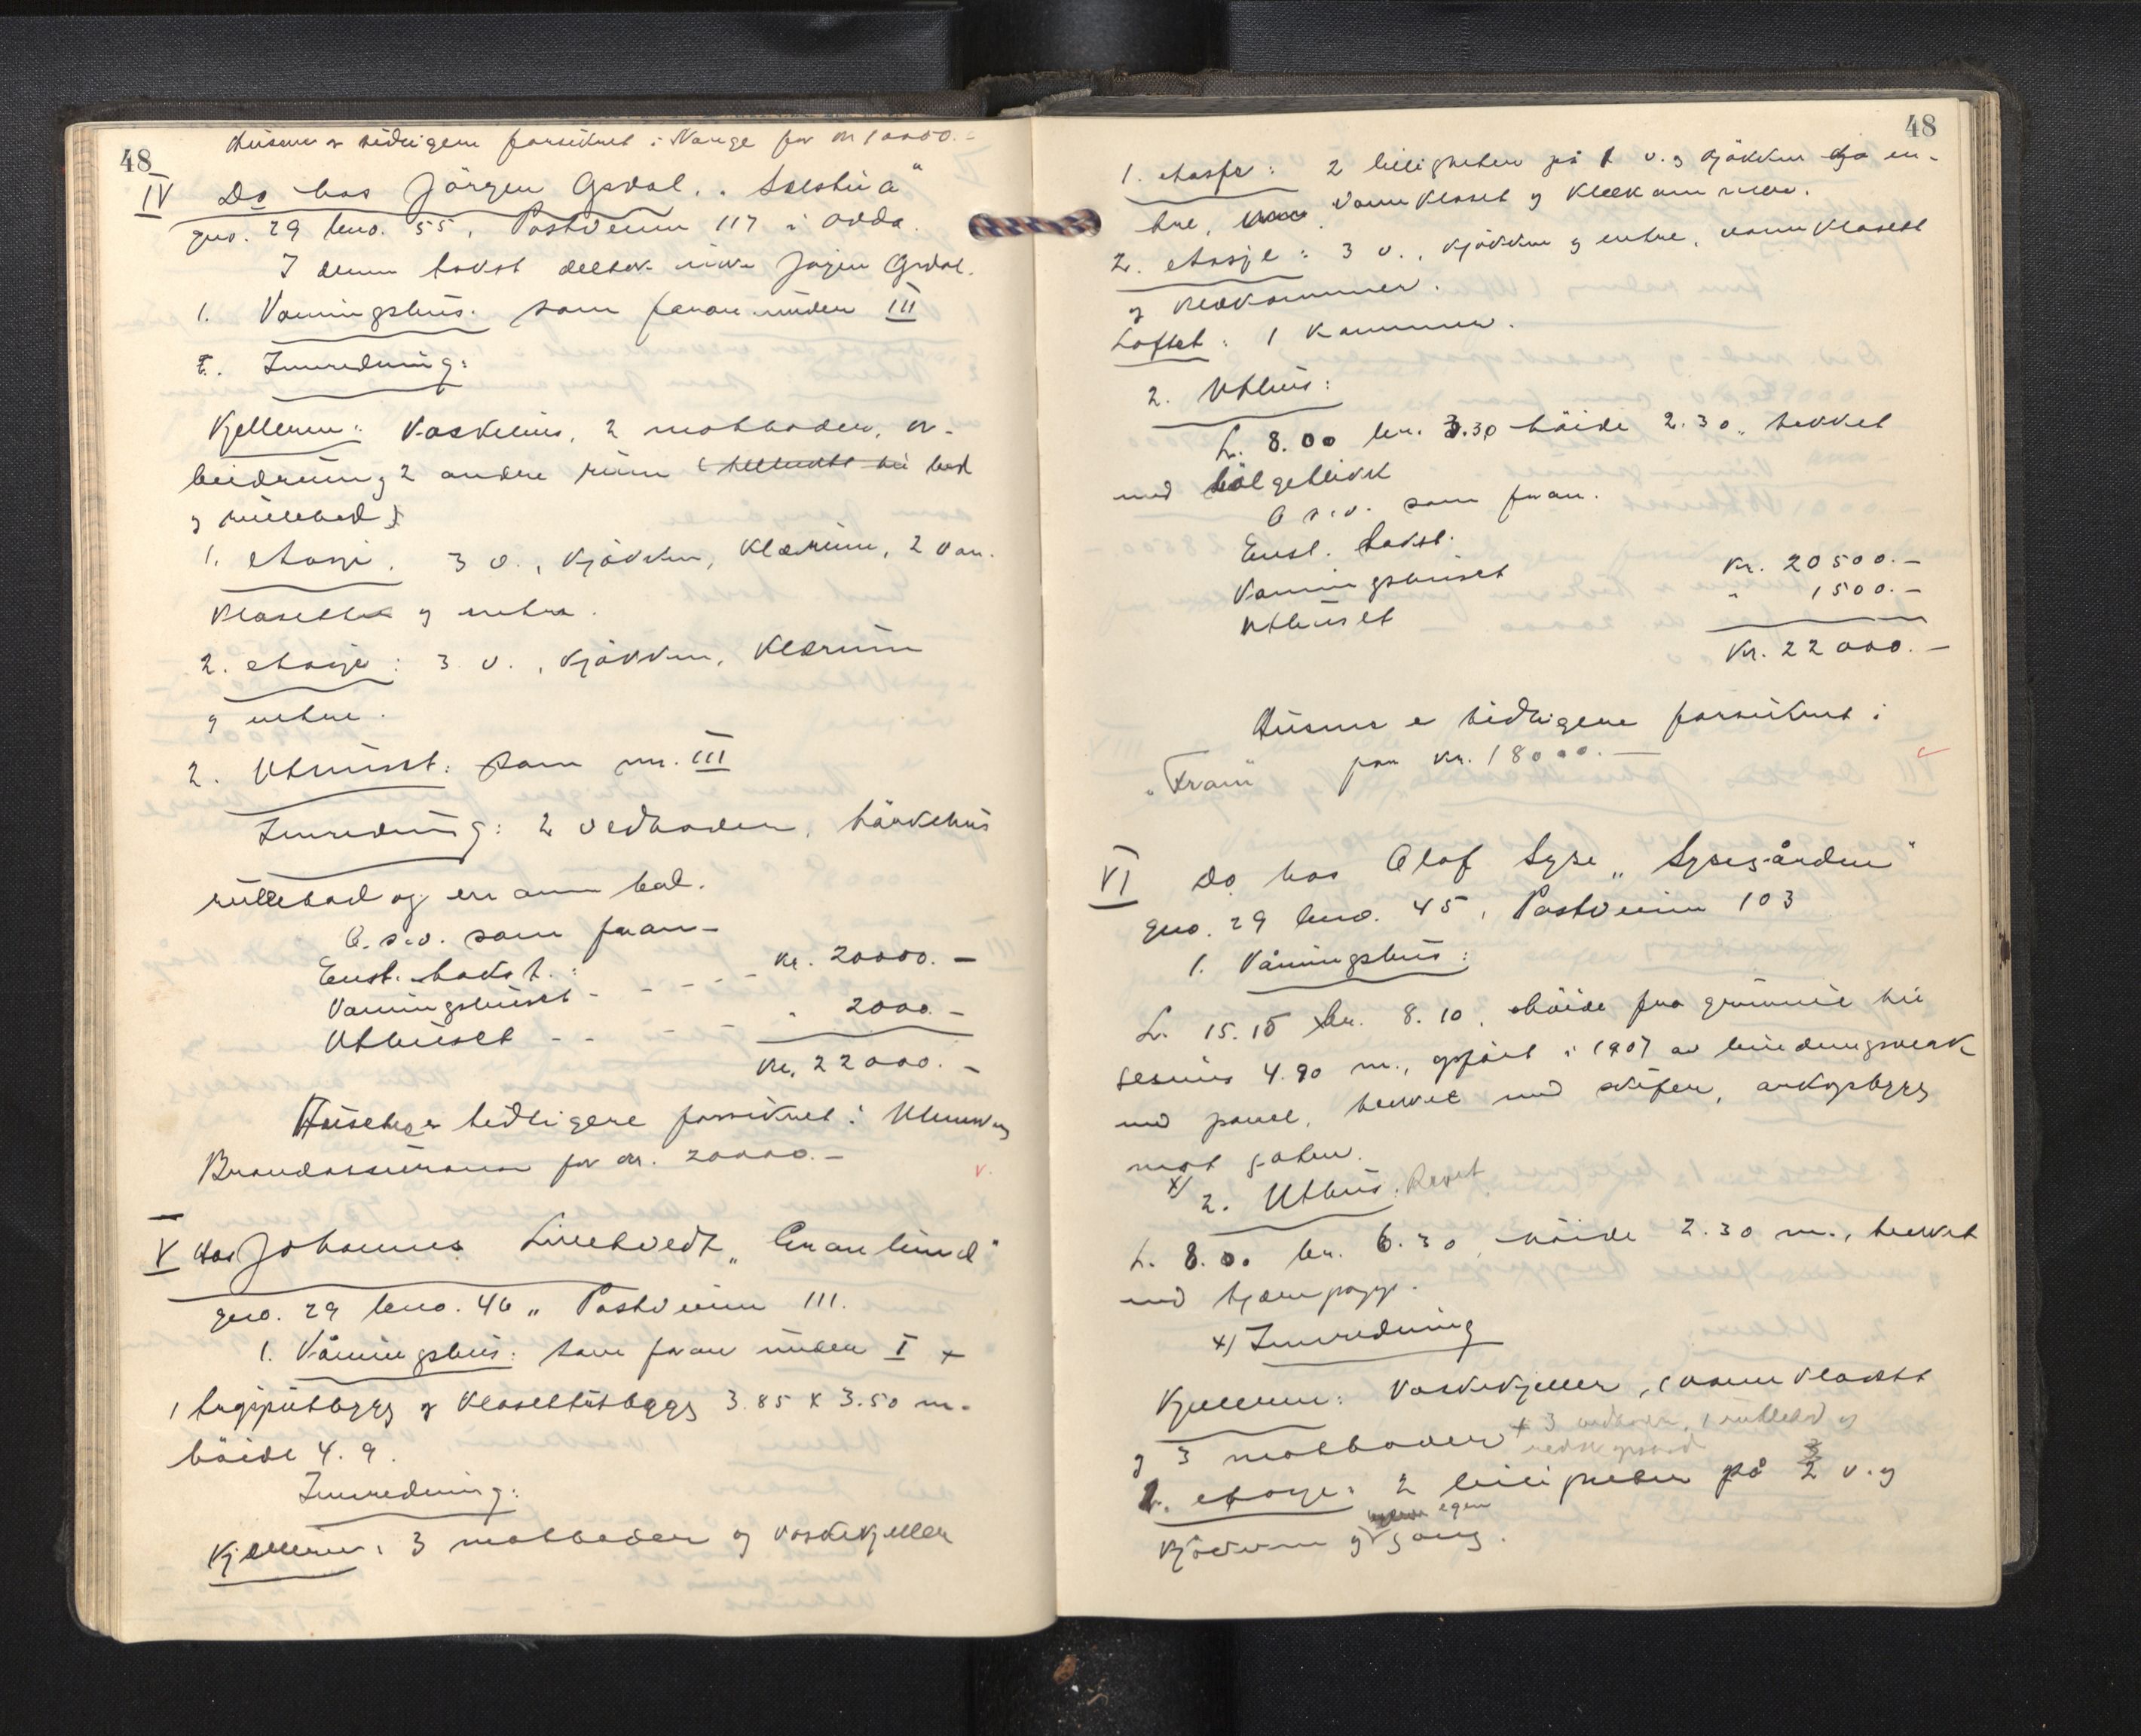 48
Husene er tidligere forsikret i Norge for kr 10000.-
IV Do hos Jörgen Opdal, "Solstua"
gno. 29 bno. 55, Postveien 117 i Odda.
I denne takst deltok ikke Jörgen Opdal.
1. Vaaningshus: som foran under III
Innredning:
Kjelleren: Vaskehus, 2 matboder, ar-
beidsrum og 2 andre rum bad
og rullebod
1. etasje. 3 v., kjökken, klærum, 2 van.
klosetter og entre.
2. etasje: 3 v., kjökken, klærum
og entre.
2. Uthuset: som nr. III
Innredning: 2 vedboder, törkehus
rullebod og en ann bod.
O.s.v. som foran-
Enst. takst. :
Vaaningshuset - - - - kr. 20000.-
Uthuset - - - - " 2000.-
kr. 22000.-
Huset er tidligere forsikret i
Brandassurance for kr. 20000.- v.
V hos Johannes Lilletvedt "Granlund"
gno. 29 bno. 46, Postveien 111.
1. Våningshus: som foran under I +
1 trapputbygg og klosettutbygg 3.85 x 3.50 m.
höide 4.9.
Innredning:
Kjelleren: 3 matboder og vaskekjeller
48
1. etasje: 2 leiligheter på 1 v. og kjökken og en-
tre, vannkloset og klækammer.
2. etasje: 3 v., kjökken og entre, vannklosett
og klækammer.
Loftet: 1 kammer.
2. Uthus:
L. 8.00 br. 3.30 höide 2.30, tekket
med bölgeblikk
O.s.v. som foran.
Enst. takst.
Vaaningshuset kr. 20500.-
Uthuset " 1500.-
Kr. 22000.-
Husene er tidligere forsikret i
"Fram" for kr. 18000.-
VI Do hos Olaf Syse "Sysegården"
gno. 29 bno. 45, Postveien 103
1. Våningshus:
L. 15.15 br. 8.10, höide fra grunnmur til
gesims 4.90 m., opfört i 1907 av bindingsverk
med panel, tekket med skifer, arkopbygg
mot gaten.
x) 2. Uthus: Revet
L. 8.00 br. 6.30, höide 2.30 m., tekket
med tjærepapp.
x) Innredning
Kjelleren: Vaskekjeller, 1 vannklosett
og 3 matboder + 3 vedboder, 1 rullebod og
redskapsbod
1. etasje: 2 leiligheter på 2 v. og
kjökken og egen gang.